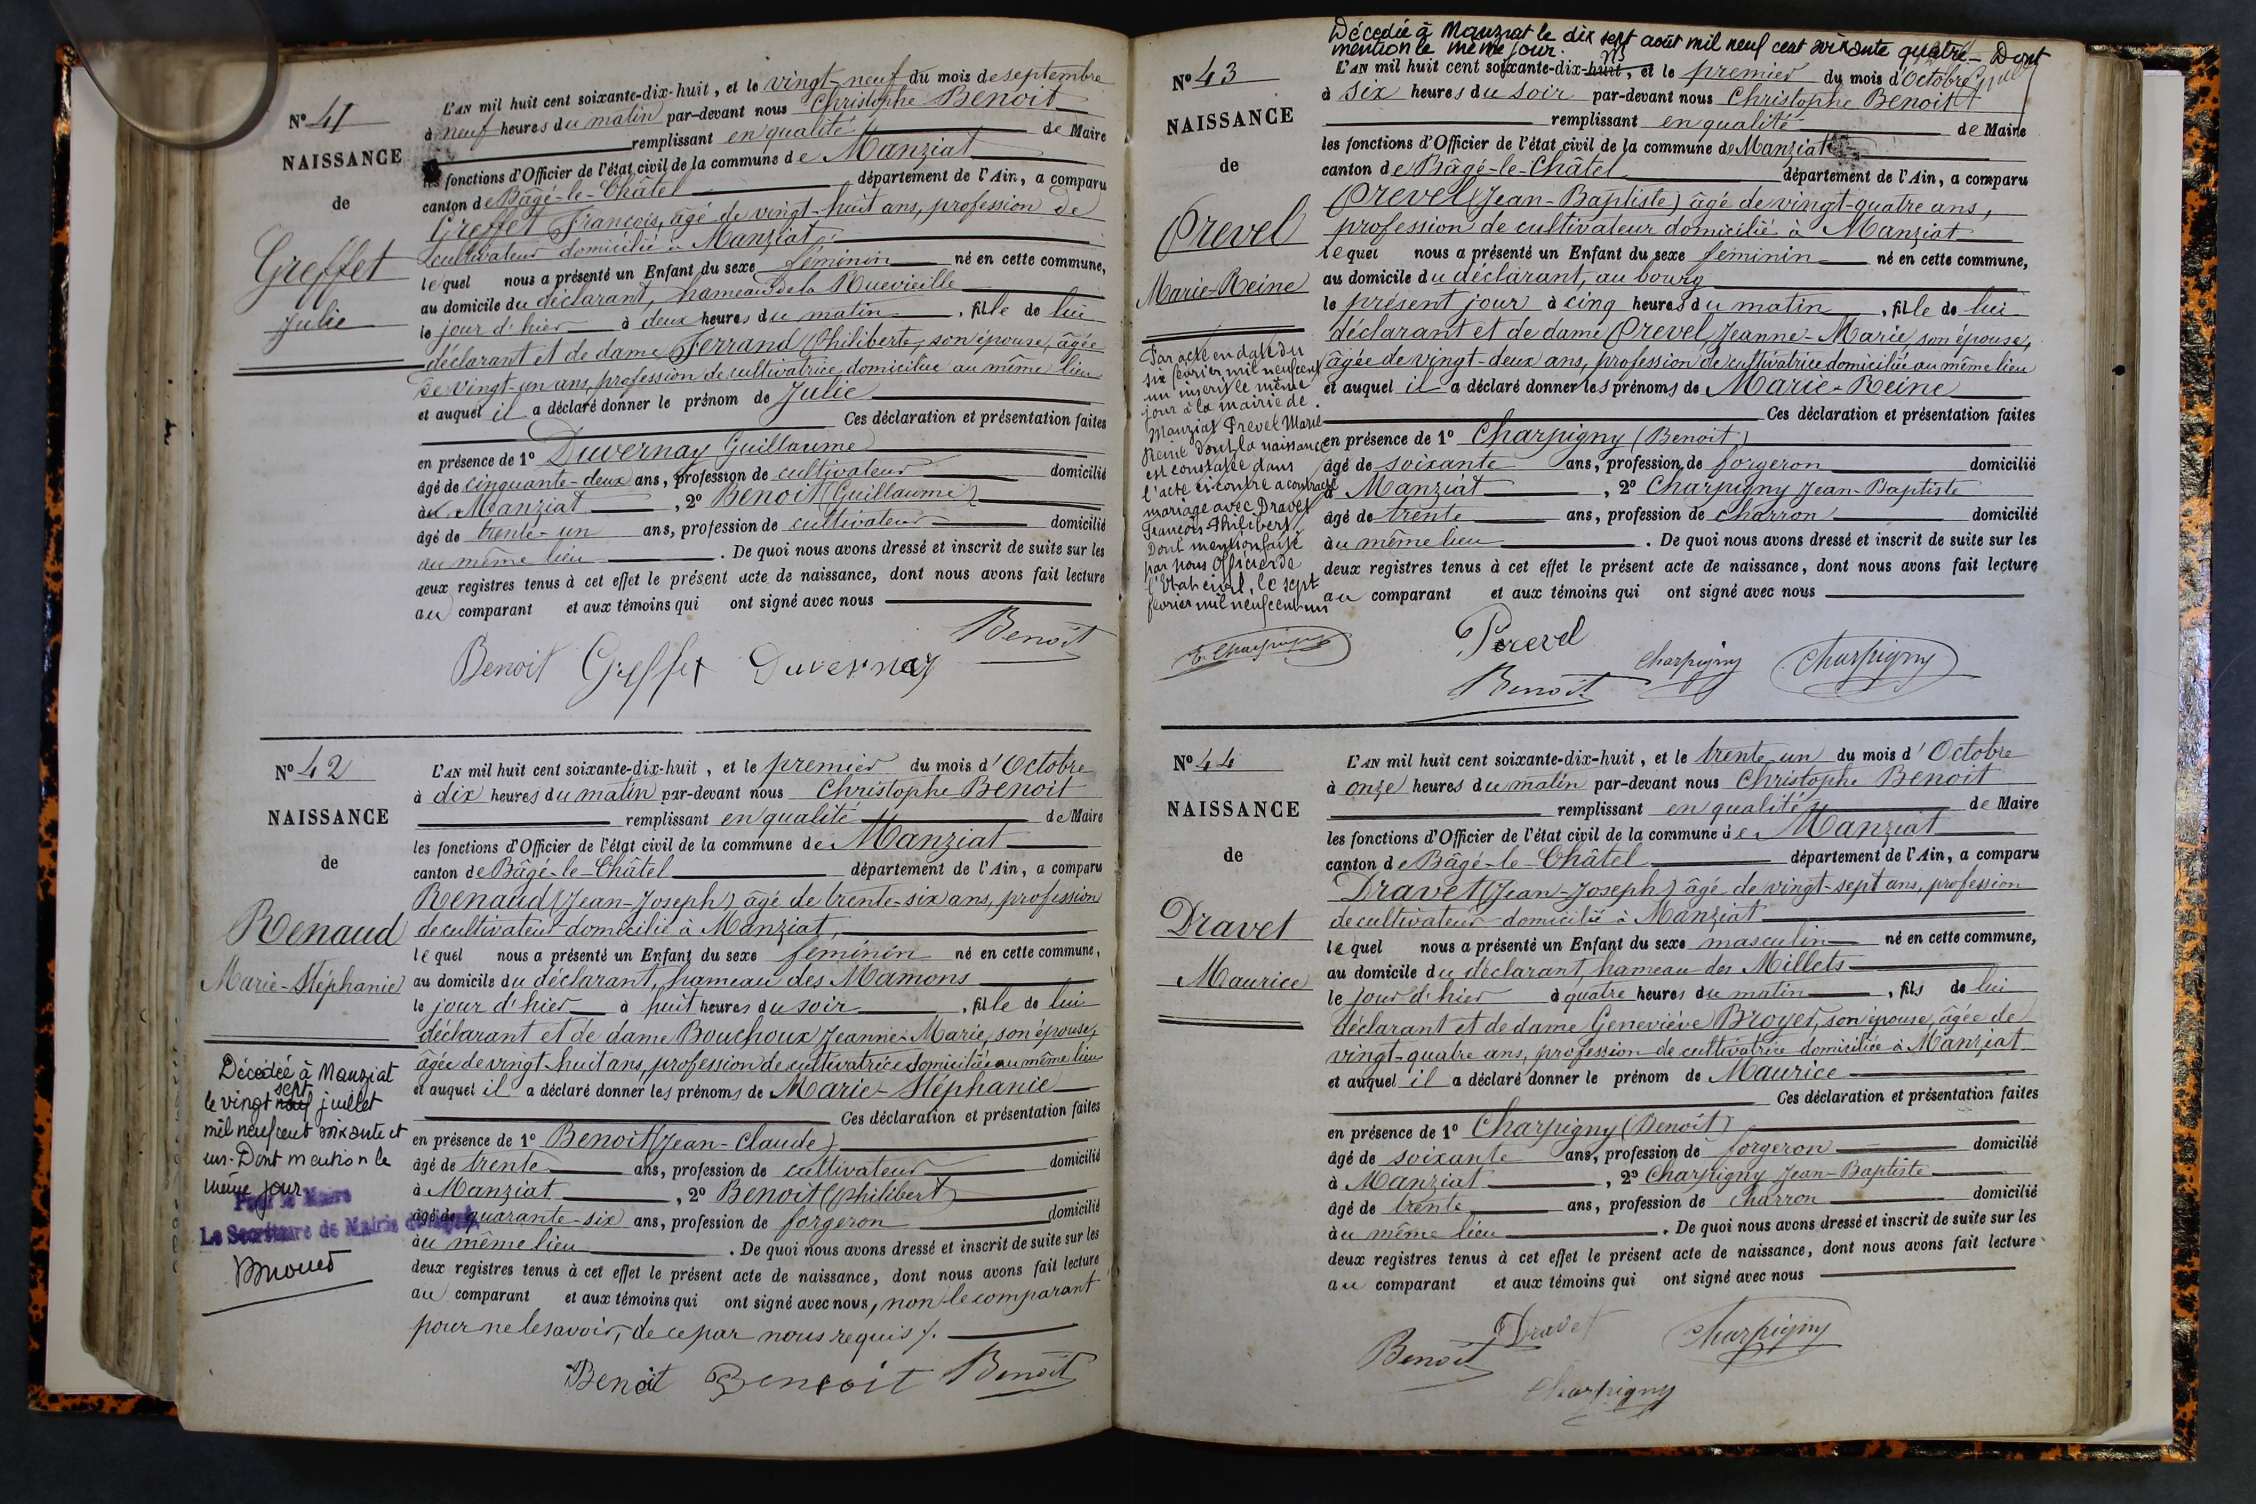 N° 41
NAISSANCE
de
Greffet
Julie
L'AN mil huit cent soixante-dix-huit, et le vingt-neuf du mois de septembre
à neuf heures du matin par-devant nous Christophe Benoit
remplissant en qualité de Maire
les fonctions d'Officier de l'état civil de la commune de Manziat
canton de Bâgé-le-Châtel département de l'Ain, a comparu
Greffet François, âgé de vingt-huit ans, profession de
cultivateur domicilié à Manziat,
lequel nous a présenté un Enfant du sexe féminin né en cette commune,
au domicile du déclarant, hameau de la Ruevieille
le jour d'hier à deux heures du matin, fille de lui
déclarant et de dame Ferrand Philiberte, son épouse, âgée
de vingt-un ans, profession de cultivatrice, domiciliée au même lieu
et auquel il a déclaré donner le prénom de Julie
Ces déclaration et présentation faites
en présence de 1° Duvernay Guillaume
âgé de cinquante-deux ans, profession de cultivateur domicilié
à Manziat, 2° Benoit (Guillaume)
âgé de trente-un ans, profession de cultivateur domicilié
au même lieu. De quoi nous avons dressé et inscrit de suite sur les
deux registres tenus à cet effet le présent acte de naissance, dont nous avons fait lecture
au comparant et aux témoins qui ont signé avec nous
Benoit
Benoit Greffet Duvernay
N° 42
NAISSANCE
de
Renaud
Marie-Stéphanie
Décédée à Manziat
le vingt neuf sept juillet
mil neuf cent soixante et
un. Dont mention le
même jour
Pour le Maire
Le Secrétaire de Mairie
L'AN mil huit cent soixante-dix-huit, et le premier du mois d'Octobre
à dix heures du matin par-devant nous Christophe Benoit
remplissant en qualité de Maire
les fonctions d'Officier de l'état civil de la commune de Manziat
canton de Bâgé-le-Châtel département de l'Ain, a comparu
Renaud (Jean-Joseph) âgé de trente-six ans, profession
de cultivateur domicilié à Manziat,
lequel nous a présenté un Enfant du sexe féminin né en cette commune,
au domicile du déclarant, hameau des Mamons
le jour d'hier à huit heures du soir, fille de lui
déclarant et de dame Bouchoux Jeanne-Marie, son épouse,
âgée de vingt huit ans, profession de cultivatrice domiciliée au même lieu
et auquel il a déclaré donner les prénoms de Marie-Stéphanie
Ces déclaration et présentation faites
en présence de 1° Benoit (Jean-Claude)
âgé de trente ans, profession de cultivateur domicilié
à Manziat, 2° Benoit (philibert)
âgé de quarante-six ans, profession de forgeron domicilié
au même lieu. De quoi nous avons dressé et inscrit de suite sur les
deux registres tenus à cet effet le présent acte de naissance, dont nous avons fait lecture
au comparant et aux témoins qui ont signé avec nous, non le comparant
pour ne le savoir, de ce par nous requis ./.
Benoit Benoit Benoit
Décédée à Manziat le dix sept août mil neuf cent soixante quatre. Dont
mention le même jour.
N° 43
NAISSANCE
de
Prevel
Marie-Reine
Par acte en date du
six février mil neuf cent
un inscrit le même
jour à la mairie de
Manziat Prevel Marie
Reine dont la naissance
est constatée dans
l'acte ci-contre a contracté
mariage avec Dravet
François Philibert
Dont mention faite
par nous Officier de
l'Etat civil, le sept
février mil neuf cent un
L'AN mil huit cent soixante-dix-huit, et le premier du mois d'Octobre
à six heures du soir par-devant nous Christophe Benoit
remplissant en qualité de Maire
les fonctions d'Officier de l'état civil de la commune de Manziat
canton de Bâgé-le-Châtel département de l'Ain, a comparu
Prevel (Jean-Baptiste) âgé de vingt-quatre ans,
profession de cultivateur domicilié à Manziat
lequel nous a présenté un Enfant du sexe féminin né en cette commune,
au domicile du déclarant, au bourg
le présent jour à cinq heures du matin, fille de lui
déclarant et de dame Prevel Jeanne-Marie son épouse,
âgée de vingt-deux ans, profession de cultivatrice domiciliée au même lieu
et auquel il a déclaré donner les prénoms de Marie-Reine
Ces déclaration et présentation faites
en présence de 1° Charpigny (Benoit)
âgé de soixante ans, profession de forgeron domicilié
à Manziat, 2° Charpigny Jean-Baptiste
âgé de trente ans, profession de charron domicilié
au même lieu. De quoi nous avons dressé et inscrit de suite sur les
deux registres tenus à cet effet le présent acte de naissance, dont nous avons fait lecture
au comparant et aux témoins qui ont signé avec nous
Prevel
Benoit Charpigny Charpigny
N° 44
NAISSANCE
de
Dravet
Maurice
L'AN mil huit cent soixante-dix-huit, et le trente un du mois d'Octobre
à onze heures du matin par-devant nous Christophe Benoit
remplissant en qualité de Maire
les fonctions d'Officier de l'état civil de la commune de Manziat
canton de Bâgé-le-Châtel département de l'Ain, a comparu
Dravet (Jean-Joseph) âgé de vingt-sept ans, profession
de cultivateur domicilié à Manziat
lequel nous a présenté un Enfant du sexe masculin né en cette commune,
au domicile du déclarant, hameau des Millets
le jour d'hier à quatre heures du matin, fils de lui
déclarant et de dame Geneviève Broyer, son épouse, âgée de
vingt-quatre ans, profession de cultivatrice domiciliée à Manziat
et auquel il a déclaré donner le prénom de Maurice
Ces déclaration et présentation faites
en présence de 1° Charpigny (Benoit)
âgé de soixante ans, profession de forgeron domicilié
à Manziat, 2° Charpigny Jean-Baptiste
âgé de trente ans, profession de charron domicilié
au même lieu. De quoi nous avons dressé et inscrit de suite sur les
deux registres tenus à cet effet le présent acte de naissance, dont nous avons fait lecture
au comparant et aux témoins qui ont signé avec nous
Benoit Dravet Charpigny
Charpigny